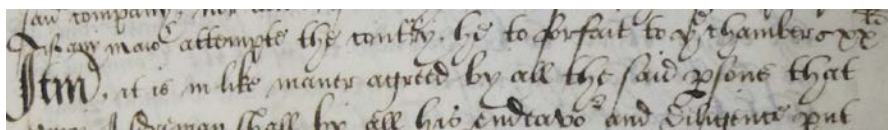 said company, nor
If any man attempte the contry, he to forfait to ye chamber xxli
Itm, it is in like maner agreed by all the said psons that
Alderman shall by all his endeavor and diligence put